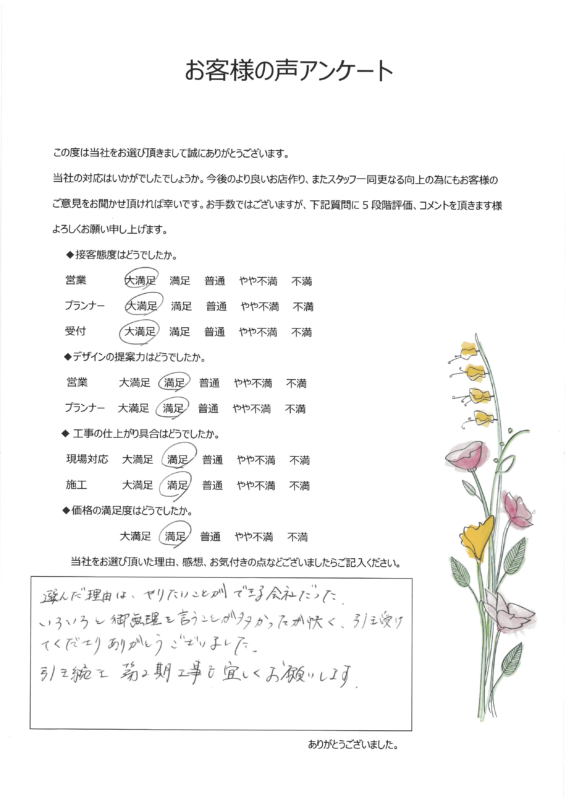 お客様の声アンケート
この度は当社をお選び頂きまして誠にありがとうございます。
当社の対応はいかがでしたでしょうか。今後のより良いお店作り、またスタッフ一同更なる向上の為にもお客様の
ご意見をお聞かせ頂ければ幸いです。お手数ではございますが、下記質問に5段階評価、コメントを頂きます様
よろしくお願い申し上げます。
◆接客態度はどうでしたか。
営業 大満足 満足 普通 やや不満 不満
プランナー 大満足 満足 普通 やや不満 不満
受付 大満足 満足 普通 やや不満 不満
◆デザインの提案力はどうでしたか。
営業 大満足 満足 普通 やや不満 不満
プランナー 大満足 満足 普通 やや不満 不満
◆ 工事の仕上がり具合はどうでしたか。
現場対応 大満足 満足 普通 やや不満 不満
施工 大満足 満足 普通 やや不満 不満
◆価格の満足度はどうでしたか。
大満足 満足 普通 やや不満 不満
当社をお選び頂いた理由、感想、お気付きの点などございましたらご記入ください。
選んだ理由は、やりたいことができる会社だった.
いろいろと御無理を言うことが多かったが快く、引き受け
てくださりありがとうございました.
引き続き 第2期工事も宜しくお願いします.
ありがとうございました。